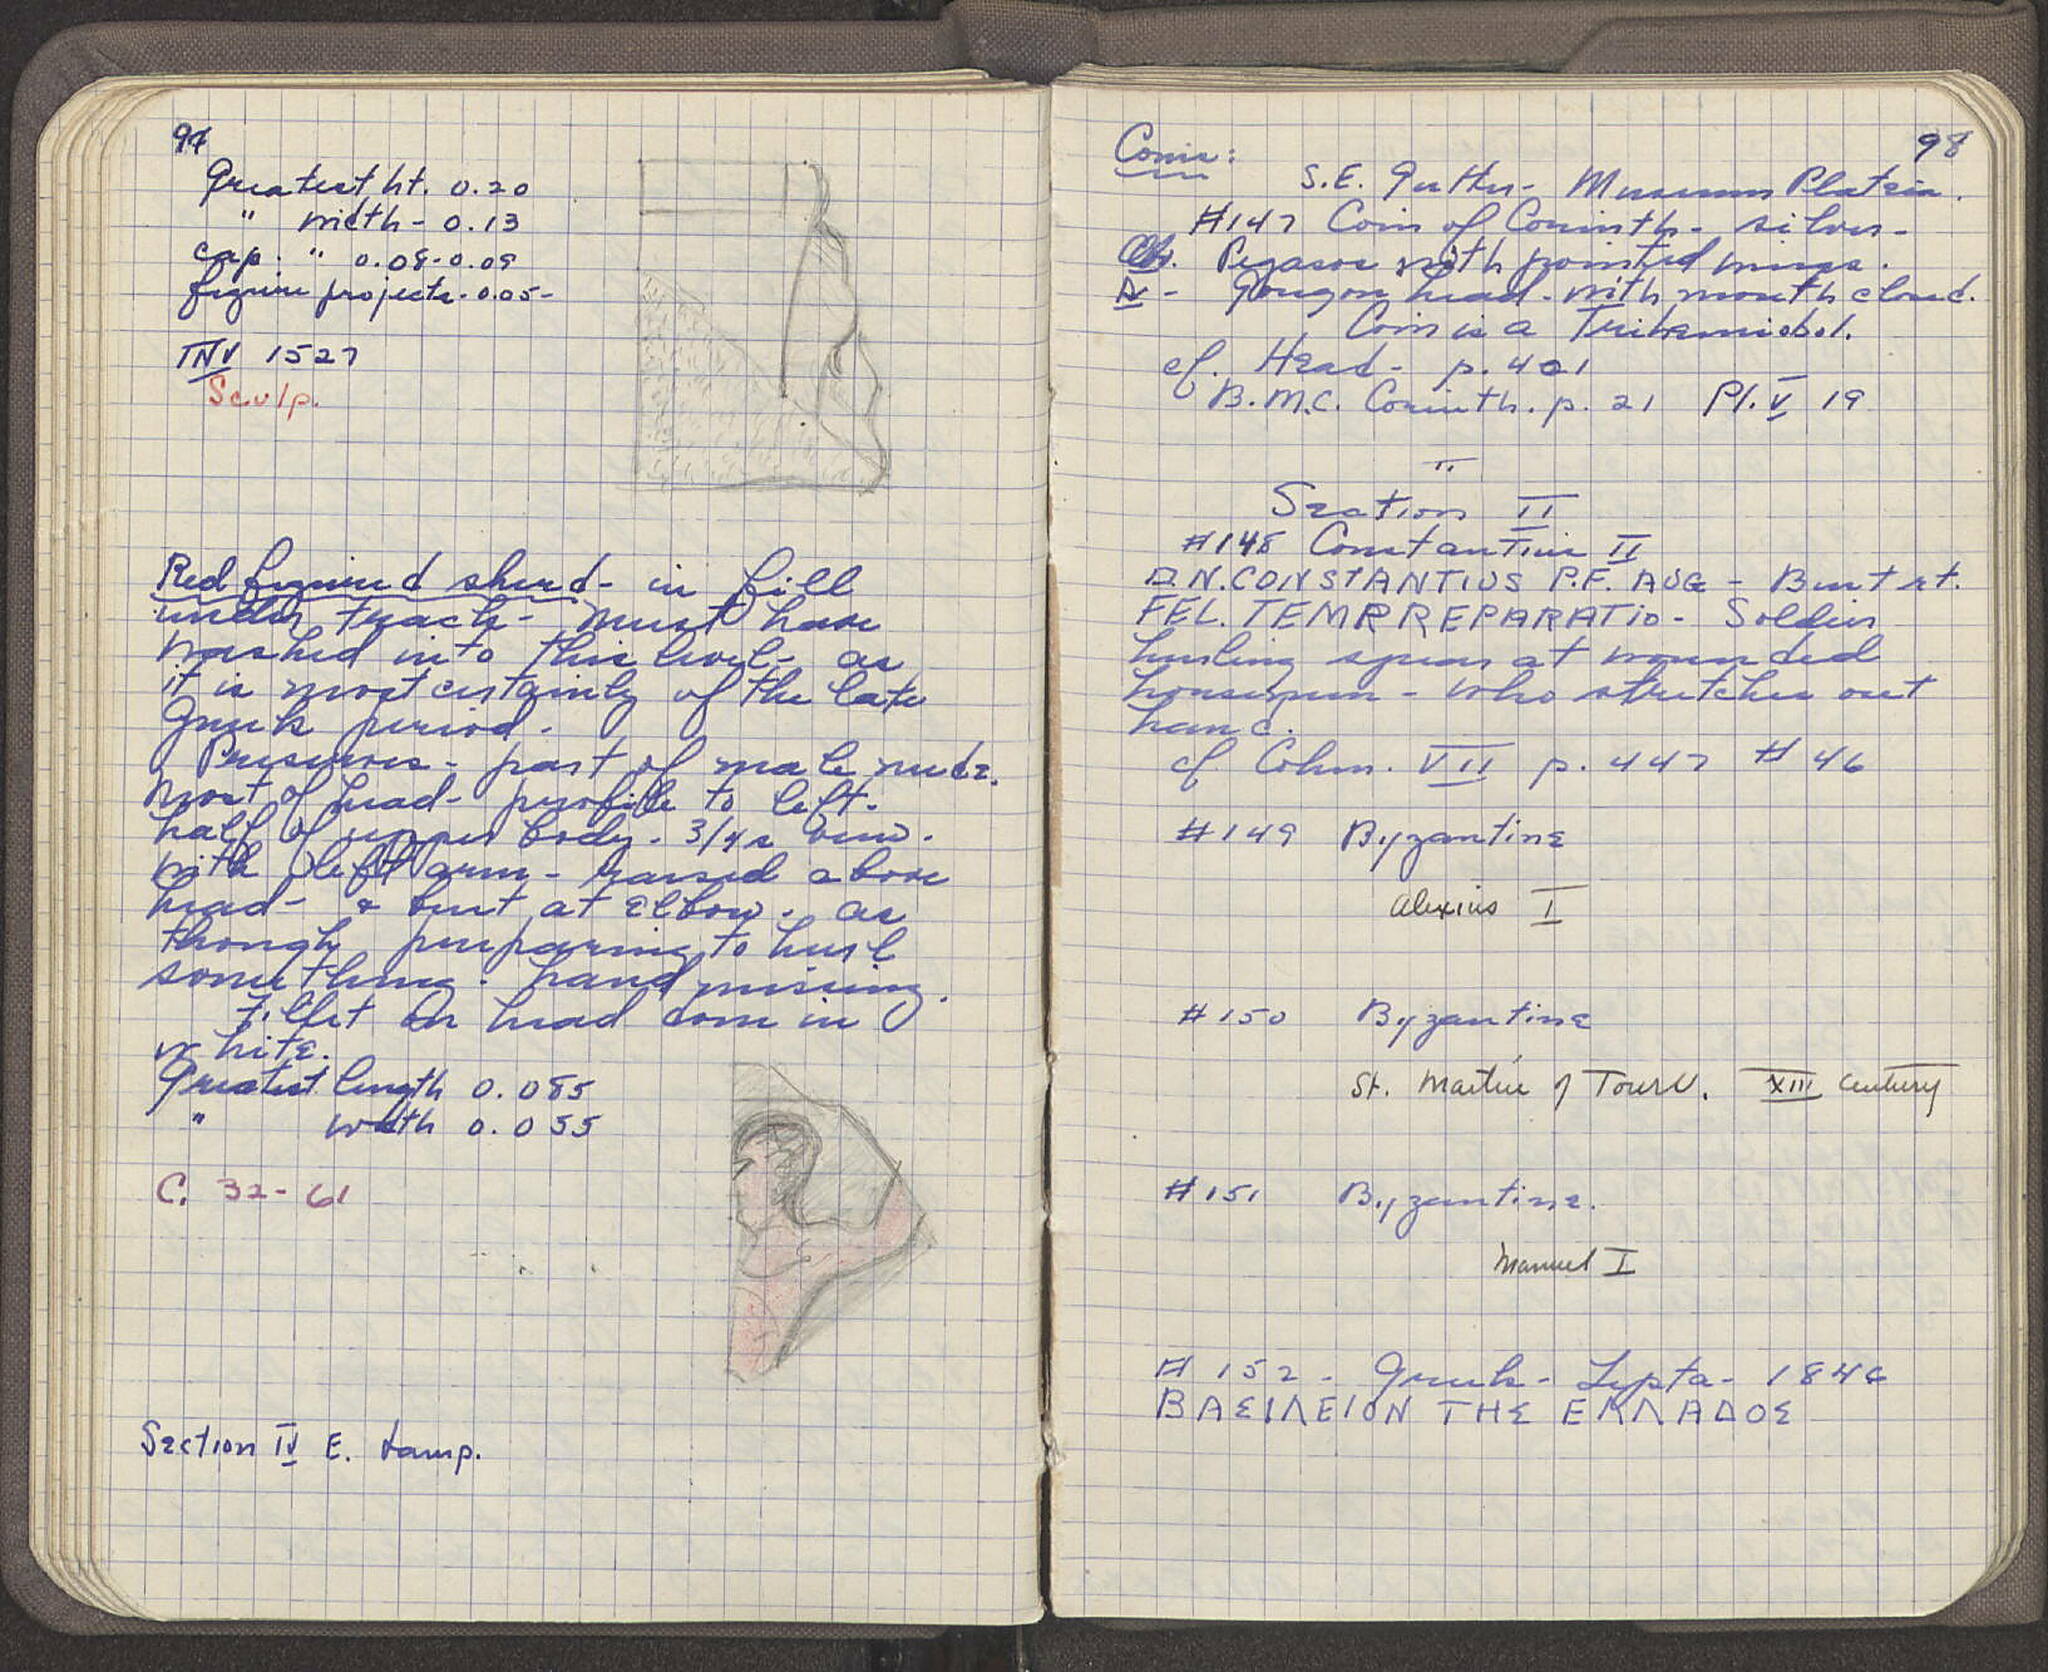 97
Greatest ht. 0.20
" width - 0.13
cap. " 0.08-0.09
figure projects - 0.05-
INV 1527
Sculp.
Red figured sherd - in fill
under track - must have
washed into this level - as
it is most certainly of the late
Greek period.
Preserves - part of male nude.
Most of head - profile to left.
half of upper body. 3/4s view.
with left arm - raised above
head - & bent at elbow. as
though preparing to hurl
something. hand missing.
Fillet on head done in
white.
Greatest length 0.085
" width 0.055
C. 32-61
Section IV E. Lamp.
98
Coins:
S.E. Gutter - Museum Plateia.
#147 Coin of Corinth - silver -
Ob. Pegasos with pointed wings.
R - Gorgon head - with mouth closed.
Coin is a Trihemiobol.
cf. Head - p. 401
B.M.C. Corinth. p. 21 Pl. V 19
Section II
#148 Constantius II
D.N. CONSTANTIUS P.F. AUG - Bust rt.
FEL. TEMP REPARATIO - Soldier
hurling spear at wounded
horseman - who stretches out
hand.
cf. Cohen. VII p. 447 #46
#149 Byzantine
Alexius I
#150 Byzantine
St. Martin of Tours. XIII century
#151 Byzantine.
Manuel I
#152 - Greek - Lepta - 1846
ΒΑΣΙΛΕΙΟΝ ΤΗΣ ΕΛΛΑΔΟΣ